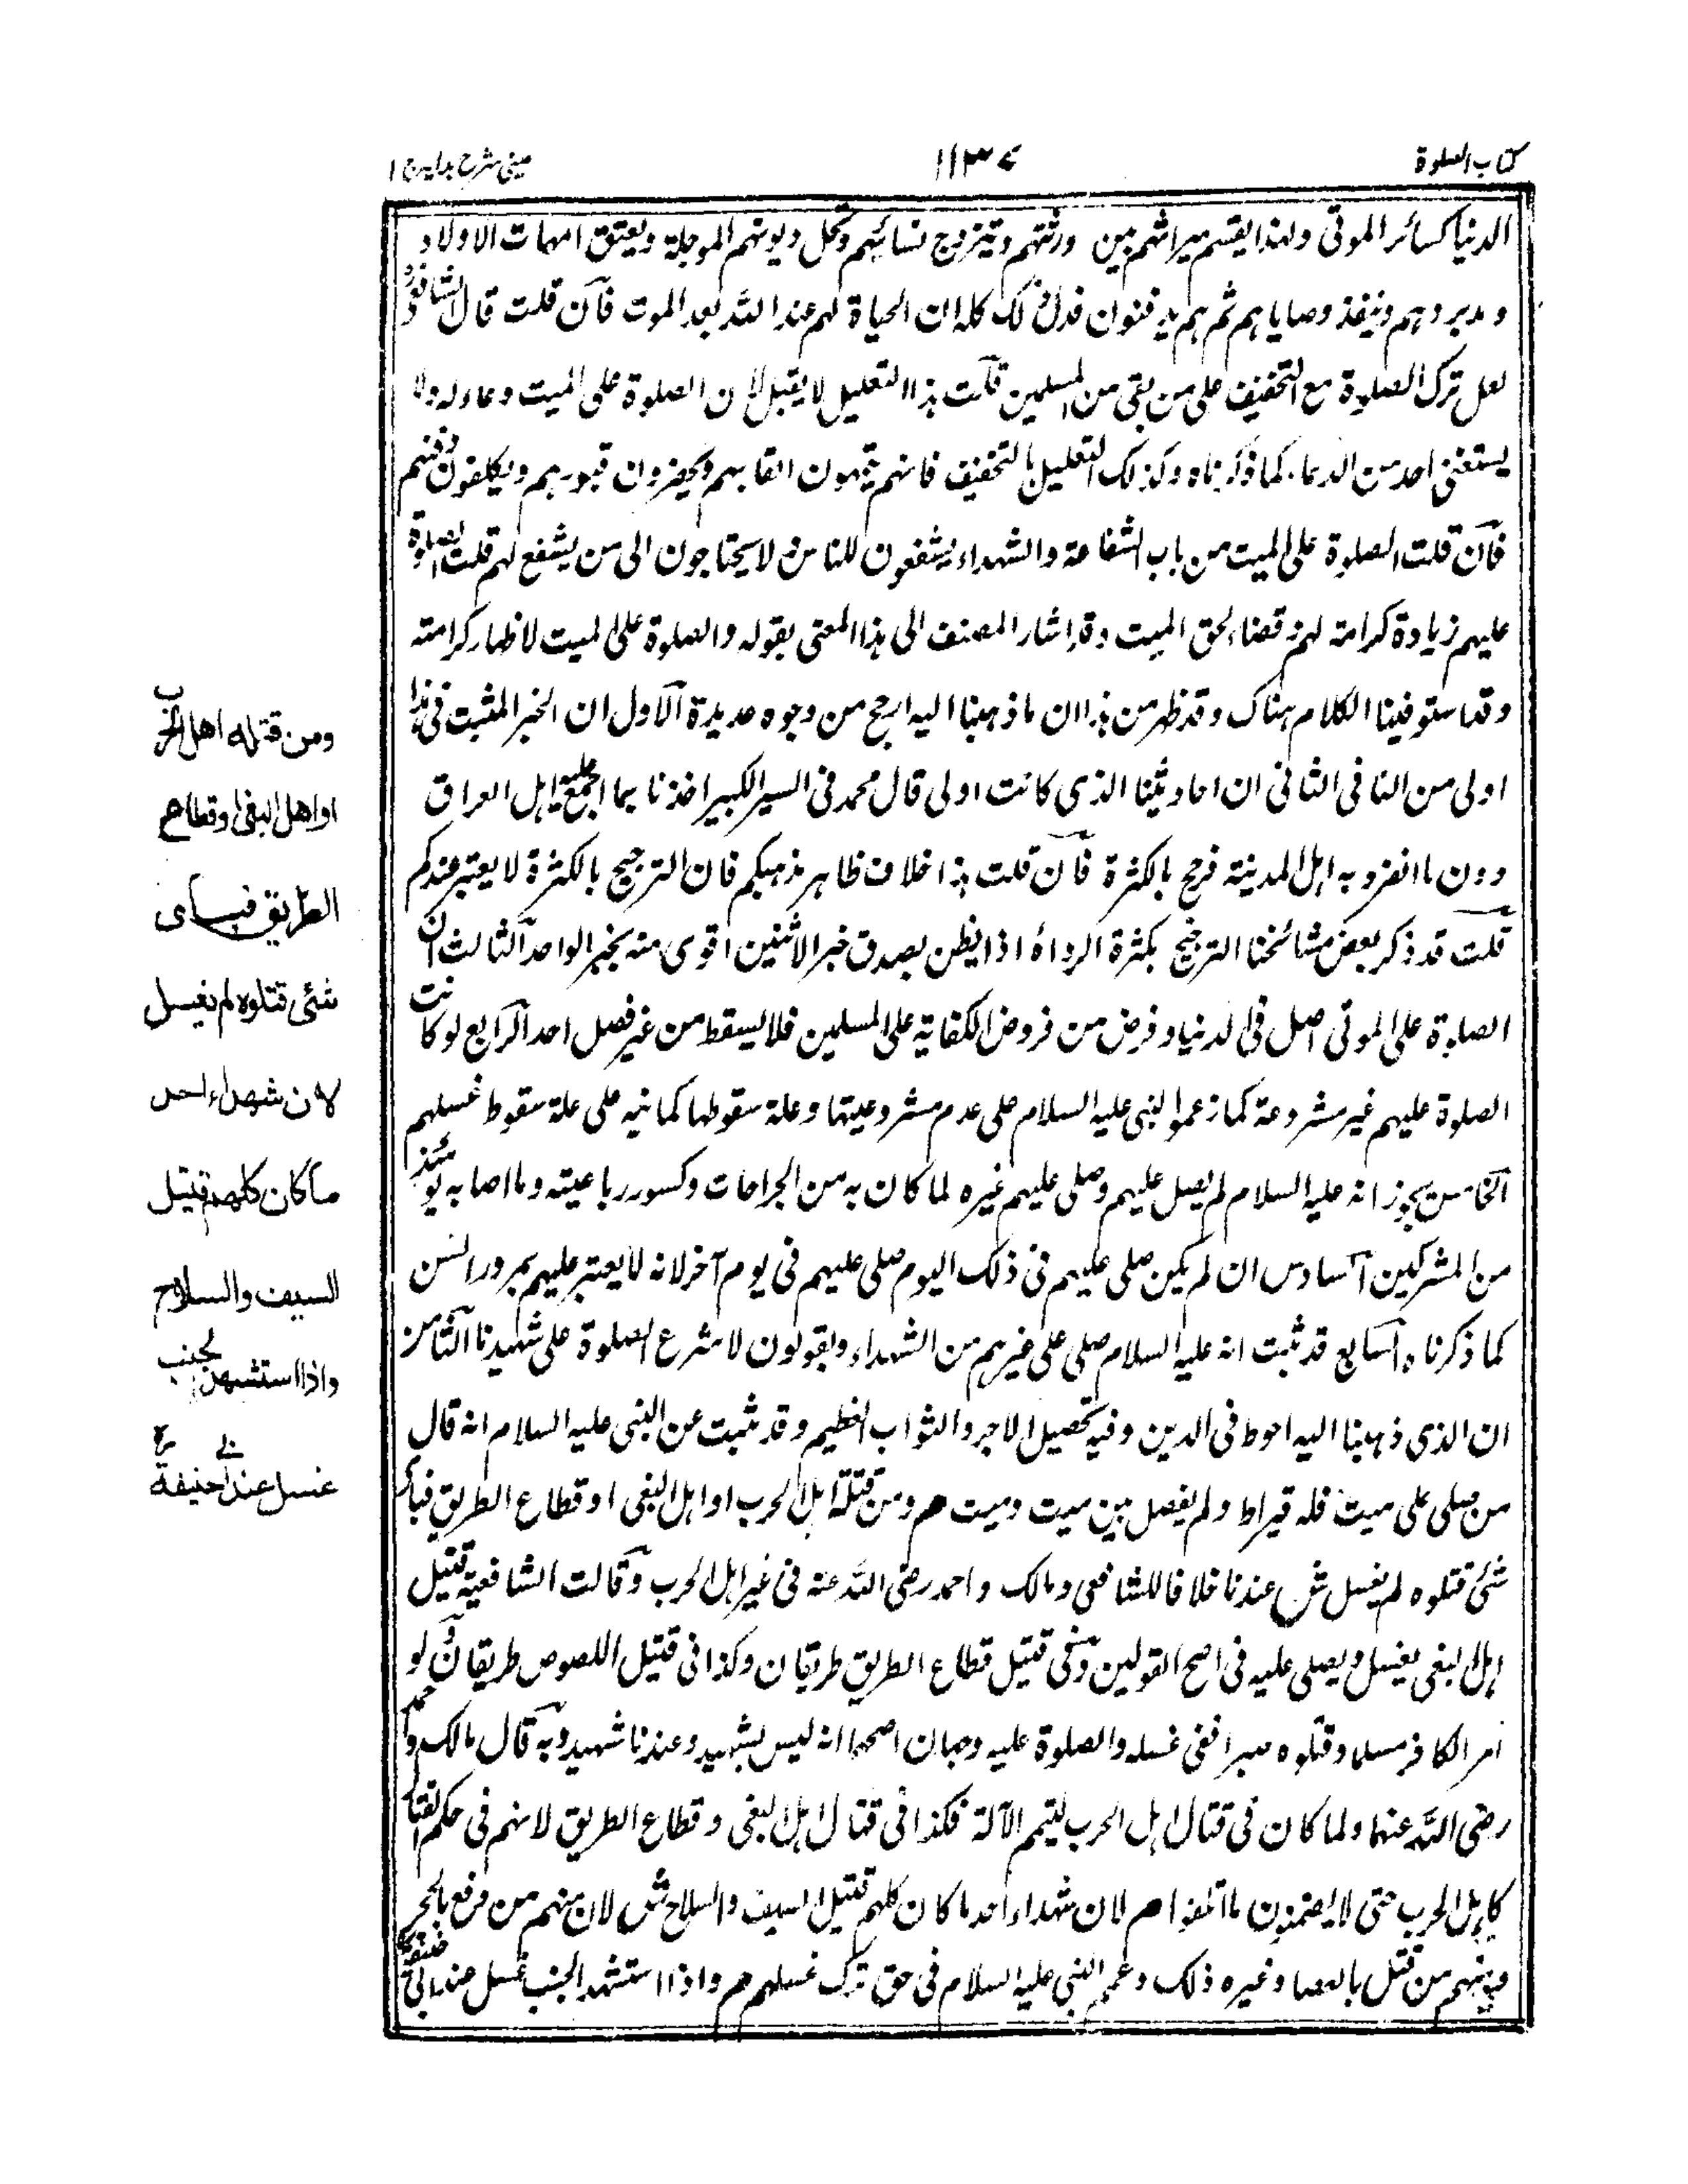 كتاب الصلوة
١١٣٧
عينى شرح هدايه ج ١
الدنيا كسائر الموتى ولهذا يقسم ميراثهم بين ورثتهم وتتزوج نسائهم وتحل ديونهم الموجلة ويعتق امهات الاولاد
و مدبروهم وينفذ وصاياهم ثم هم يدفنون فدل ذلك كله ان الحياة لهم عند الله بعد الموت فان قلت قال الشافعى
لعل ترك الصلوة مع التخفيف على من بقى من المسلمين قلت هذا التعليل لا يقبل لان الصلوة على الميت دعاء له ولا
يستغنى احد من الدعاء كما ذكرناه وكذلك التعليل بالتخفيف فانهم يجهزون القابهم ويحضرون قبورهم ويكلفون دفنهم
فان قلت الصلوة على الميت من باب الشفاعة والشهداء يشفعون للناس ولا يحتاجون الى من يشفع لهم قلت الصلوة
عليهم زيادة كرامة لهم وقضاء لحق الميت وقد اشار المصنف الى هذا المعنى بقوله والصلوة على الميت لاظهار كرامته
وقد استوفينا الكلام هناك وقد ظهر من هذا ان ما ذهبنا اليه ارجح من وجوه عديدة الاول ان الخبر المثبت فى هذا
اولى من النافى الثانى ان احاديثنا الذى كانت اولى قال محمد فى السير الكبير اخذنا بما اجمع عليه اهل العراق
دون ما انفرد به اهل المدينة فرجح بالكثرة فان قلت هذا خلاف ظاهر مذهبكم فان الترجيح بالكثرة لا يعتبر عندكم
قلت قد ذكر بعض مشائخنا الترجيح بكثرة الرواة اذ الظن بصدق خبر الاثنين اقوى منه بخبر الواحد الثالث ان
الصلوة على الموتى اصل فى الدنيا وفرض من فروض الكفاية على المسلمين فلا يسقط من غير فصل احد الرابع لو كانت
الصلوة عليهم غير مشروعة كما زعموا لنبه النبى عليه السلام على عدم مشروعيتها وعلة سقوطها كما نبه على علة سقوط غسلهم
الخامس يجوز انه عليه السلام لم يصل عليهم وصلى عليهم غيره لما كان به من الجراحات وكسور رباعيته وما اصابه يومئذ
من المشركين السادس ان لم يكن صلى عليهم فى ذلك اليوم صلى عليهم فى يوم آخر لانه لا يعتبر عليهم بمرور السن
كما ذكرناه السابع قد ثبت انه عليه السلام صلى على غيرهم من الشهداء ويقولون لا مشرع الصلوة على شهيدنا الثامن
ان الذى ذهبنا اليه احوط فى الدين وفيه تحصيل الاجر والثواب العظيم وقد ثبت عن النبى عليه السلام انه قال
من صلى على ميت فله قيراط ولم يفصل بين ميت وميت م ومن قتله اهل الحرب او اهل البغى او قطاع الطريق فباى
شئ قتلوه لم يغسل ش عندنا خلافا للشافعى ومالك واحمد رضى الله عنه فى غير اهل الحرب وقالت الشافعية قتيل
اهل البغى يغسل ويصلى عليه فى اصح القولين وفى قتيل قطاع الطريق طريقان وكذا فى قتيل اللصوص طريقان ولو
اسر الكافر مسلما وقتلوه صبرا ففى غسله والصلوة عليه وجهان اصحهما انه ليس بشهيد وعندنا شهيد وبه قال مالك واحمد
رضى الله عنهما ولما كان فى قتال اهل الحرب لا يتم الآلة فكذا فى قتال اهل البغى وقطاع الطريق لانهم فى حكم القتال
كاهل الحرب حتى لا يضمنون ما اتلفوا م لان شهداء احد ما كان كلهم قتيل السيف والسلاح ش لان منهم من دفع بالحجر
ومنهم من قتل بالعصا وغيره ذلك وعم النبى عليه السلام فى حق ترك غسلهم م واذا استشهد الجنب غسل عند ابى حنيفة
ومن قتله اهل الحرب
او اهل البغى او قطاع
الطريق فباى
شئ قتلوه لم يغسل
لان شهداء احد
ما كان كلهم قتيل
السيف والسلاح
واذا استشهد الجنب
غسل عند ابى حنيفة رح